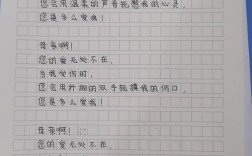 您会用温柔的声音抚慰我的心灵,
您是多么爱我!
母亲啊!
您的爱无处不在,
当我受伤时,
您会用升湖的双手抚摸我的伤口,
您是多么爱我!
母亲啊!
您的爱无处不在,